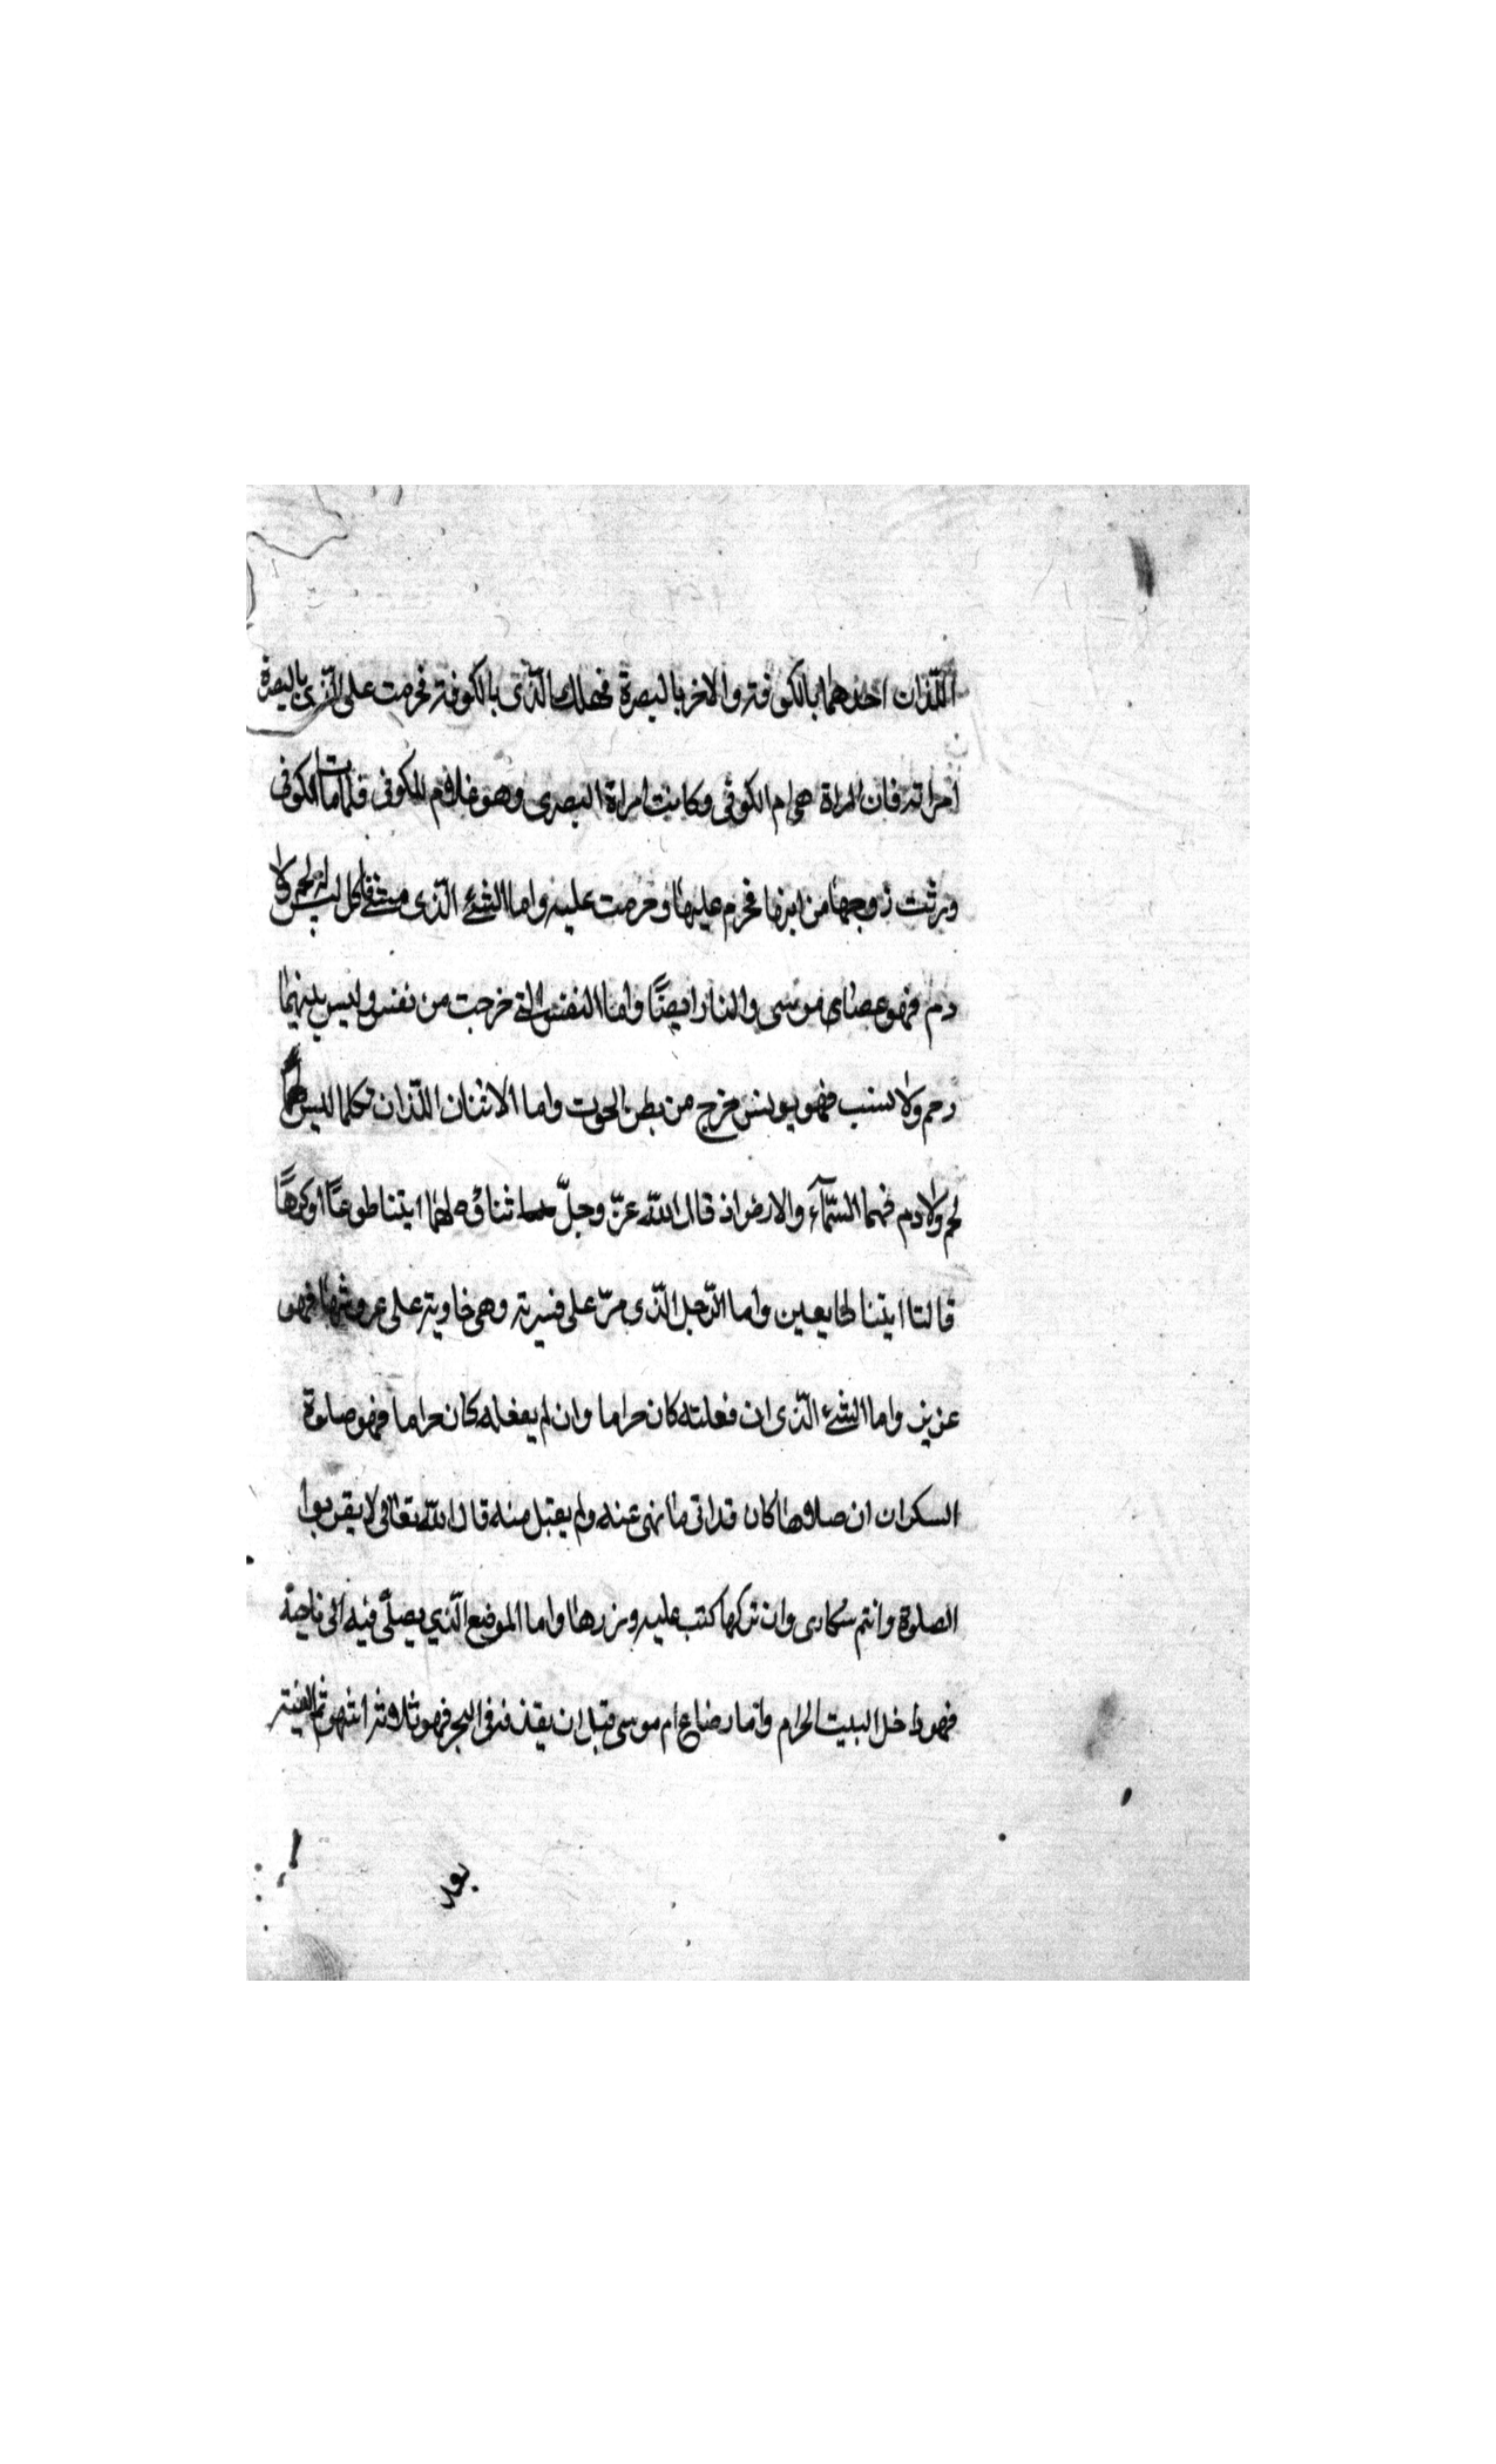 اللّذان احدهما بالكوفة والاخر بالبصرة فهلك الّذى بالكوفة فحرمت على الّذى بالبصرة
امراته فان المراة هى ام الكوفى وكانت امراة البصرى وهو غلام للكوفى فلما مات الكوفى
ورثت زوجها من ابنها فحرم عليها وحرمت عليه واما الشئ الّذى مشى فاكل ليس له لحم ولا
دم فهو عصاى موسى والنار ايضًا واما النفس الّتى خرجت من نفس وليس بينهما
رحم ولا نسب فهو يونس خرج من بطن الحوت واما الاثنان اللّذان تكلما ليس لهما
لحم ولا دم فهما السّمآء والارض اذ قال اللّه عزّ وجلّ ثناؤه لهما ايتنا طوعًا اوكرهًا
قالتا ايتنا طايعين واما الرّجل الّذى مرّ على قرية وهى خاوية على عروشها فهو
عزيز واما الشئ الّذى ان فعلته كان حراما وان لم يفعله كان حراما فهو صلوة
السكران ان صلاها كان قد اتى ما نهى عنه ولم يقبل منه قال اللّه تعالى لا يقربوا
الصلوة وانتم سكارى وان تركها كتب عليه وزرها واما الموضع الّذي يصلّى فيه الى ناحية
فهو داخل البيت الحرام واما رضاع ام موسى قبل ان يقذفه فى البحر فهو ثلاثة اشهر ثم القته